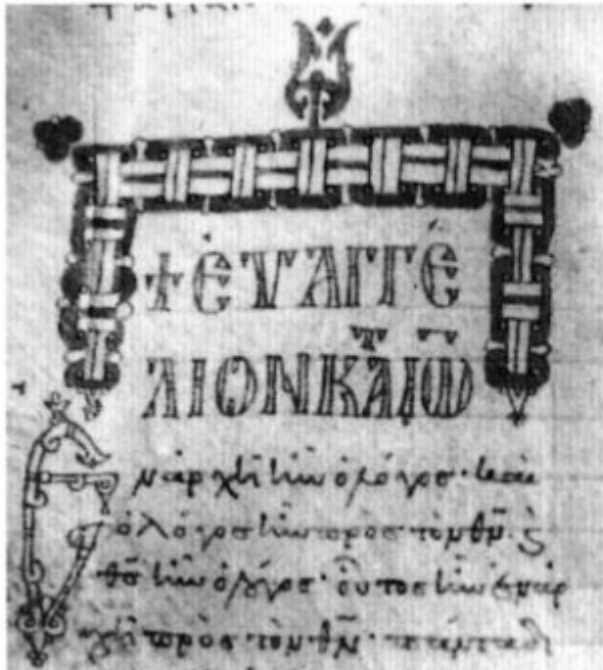 + ΕΥΑΓΓΕ
ΛΙΟΝ ΚΑΤ ΙΩ
Ἐν ἀρχῆ ἦν ὁ λόγος· καὶ
ὁ λόγος ἦν πρὸς τὸν θν· ς
θς ἦν ὁ λόγος· οὗτος ἦν ἐν ἀρ
χῆ πρὸς τὸν θν· πάντα δι